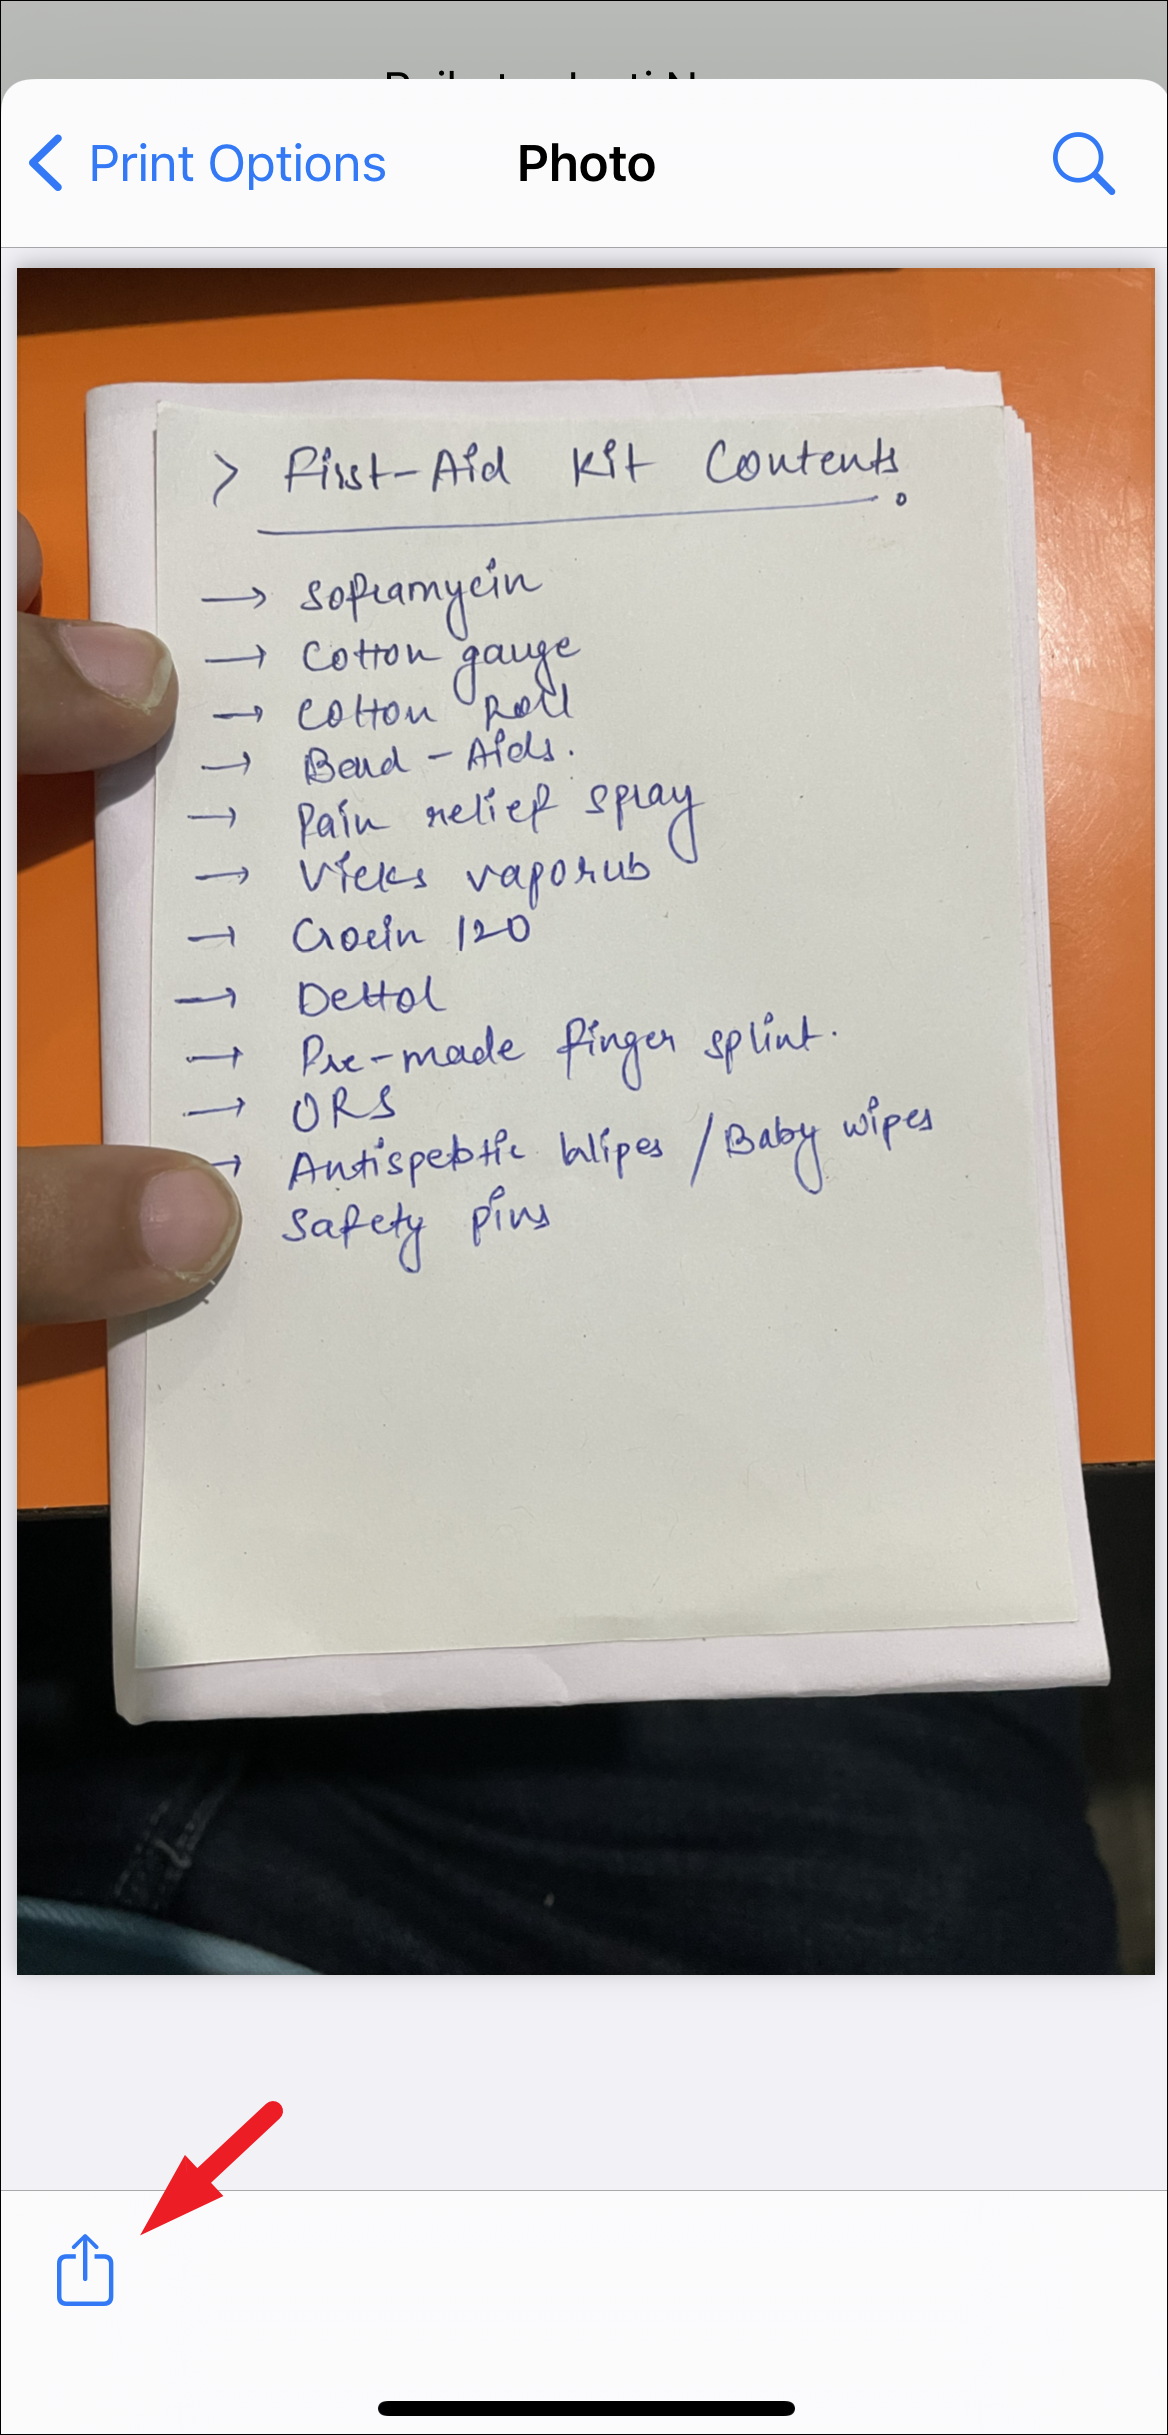 Print Options
Photo
> First-Aid Kit Contents.
→ Soframycin
→ Cotton gauge
→ Cotton Roll
→ Band-Aids.
→ Pain relief spray
→ Vicks vaporub
→ Crocin 120
→ Dettol
→ Pre-made finger splint.
→ ORS
→ Antispebtic Wipes / Baby wipes
Safety pins